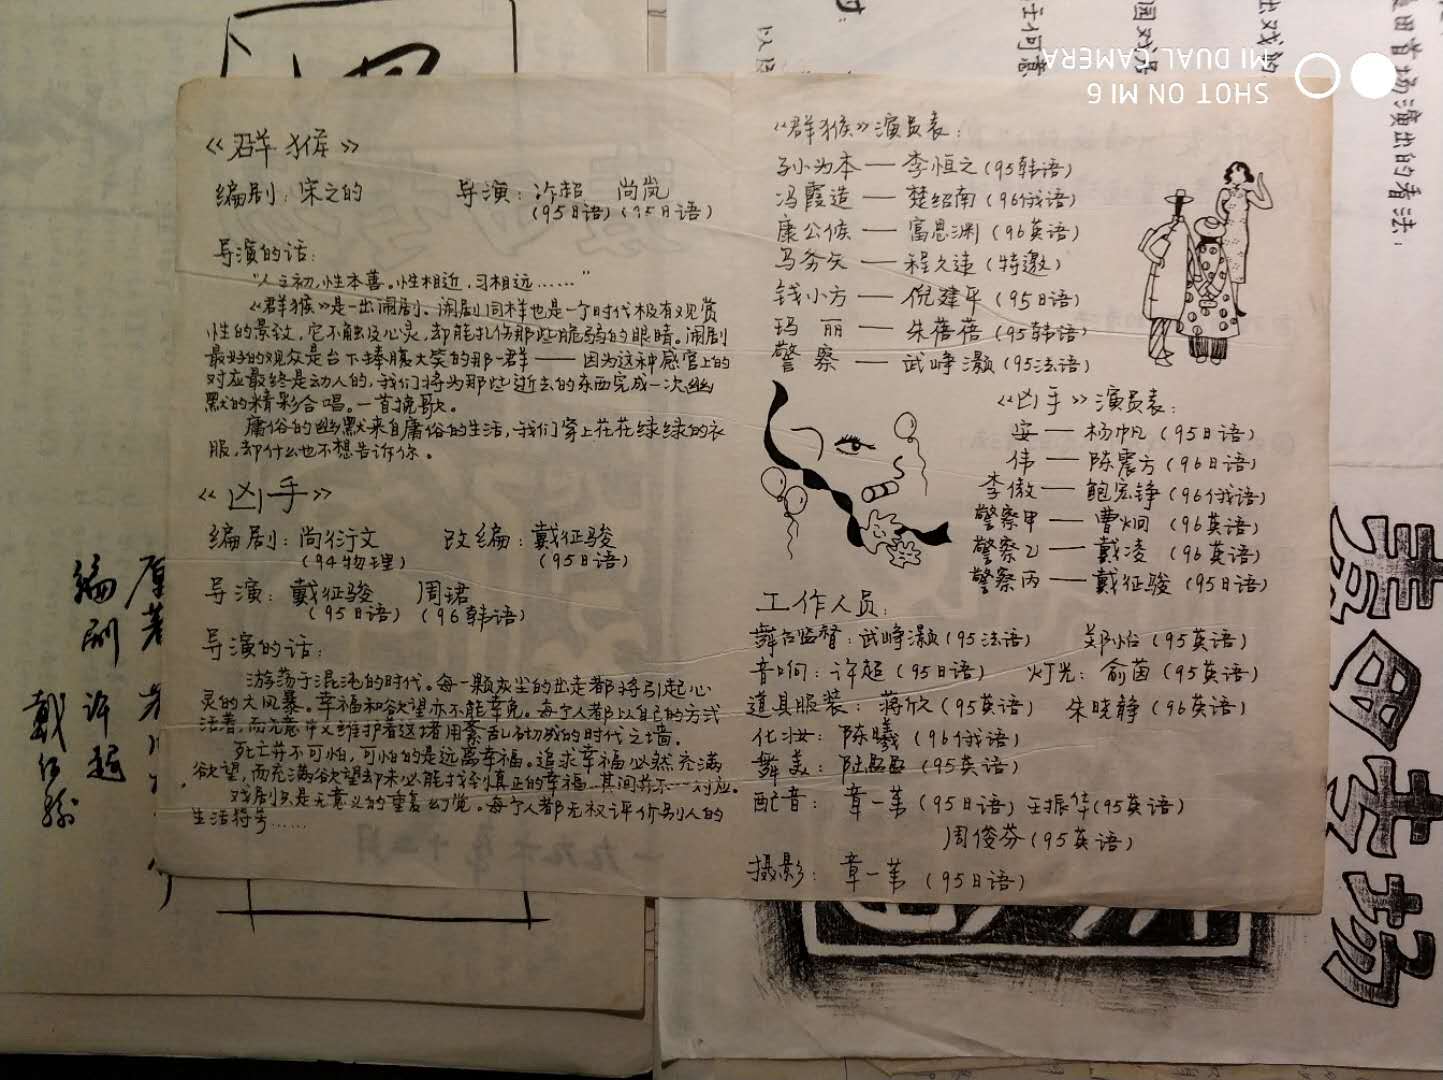 《群猴》
编剧：宋之的 导演：许超 尚岚
（95日语）（95日语）
导演的话：
“人之初，性本善。性相近，习相远……”
《群猴》是一出闹剧。闹剧同样也是一个时代极有观赏
性的景致，它不触及心灵，却能扎伤那些脆弱的眼睛。闹剧
最好的观众是台下捧腹大笑的那一群——因为这种感官上的
对应最终是动人的，我们将为那些逝去的东西完成一次幽
默的精彩合唱。一首挽歌。
庸俗的幽默来自庸俗的生活，我们穿上花花绿绿的衣
服，却什么也不想告诉你。
《凶手》
编剧：尚衍文 改编：戴征骏
（94物理） （95日语）
导演：戴征骏 周珺
（95日语）（96韩语）
导演的话：
游荡于混沌的时代。每一颗灰尘的出走都将引起心
灵的大风暴。幸福和欲望亦不能幸免。每个人都以自己的方式
活着，而无意中又维护着这堵用紊乱砌成的时代之墙。
死亡并不可怕，可怕的是远离幸福。追求幸福必然充满
欲望，而充满欲望却未必能找到真正的幸福…其间并不一一对应。
戏剧只是无意义的重复幻觉。每个人都无权评价别人的
生活符号……
《群猴》演员表：
孙小为本——李恒之（95韩语）
冯霞造——楚绍南（96俄语）
康公候——富恩渊（96英语）
马务矢——程久违（特邀）
钱小方——倪建平（95日语）
玛丽——朱蓓蓓（95韩语）
警察——武峥灏（95法语）
《凶手》演员表：
安——杨帆（95日语）
伟——陈震方（96日语）
李傲——鲍宏铮（96俄语）
警察甲——曹炯（96英语）
警察乙——戴凌（96英语）
警察丙——戴征骏（95日语）
工作人员：
舞台监督：武峥灏（95法语） 郑怡（95英语）
音响：许超（95日语） 灯光：俞茵（95英语）
道具服装：蒋欣（95英语） 朱晓静（96英语）
化妆：陈曦（96俄语）
舞美：（95英语）
配音：章一苇（95日语）王振华（95英语）
周俊芬（95英语）
摄影：章一苇（95日语）
SHOT ON MI 6
MI DUAL CAMERA
麦田首场演出的看法：
原著
编剧 许超
戴征骏
麦田剧场